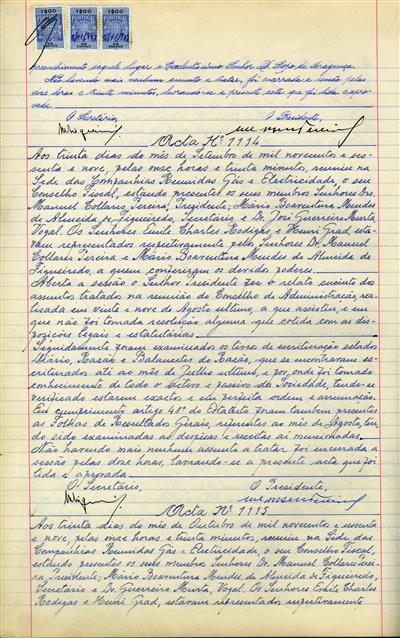 1$00 1$00 1$00
PORTUGAL PORTUGAL PORTUGAL
preenchimento daquele lugar o Excelentíssimo Senhor D. Lopo de Bragança.
Não havendo mais nenhum assunto a tratar, foi encerrada a sessão pelas
doze horas e trinta minutos, lavrando-se a presente acta que foi lida e apro-
vada.
O Secretário, O Presidente,
Acta Nº 1114
Aos trinta dias do mês de Setembro de mil novecentos e ses-
senta e nove, pelas onze horas e trinta minutos, reuniu na
Sede das Companhias Reunidas Gás e Electricidade, o seu
Conselho Fiscal, estando presentes os seus membros Senhores Drs.
Manuel Collares Pereira, Presidente; Mário Boaventura Mendes
de Almeida de Figueiredo, Secretário e D. José Guerreiro Murta,
Vogal. Os Senhores Emile Charles Rodigas e Henri Grad, esta-
vam representados respectivamente pelos Senhores Dr. Manuel
Collares Pereira e Mário Boaventura Mendes de Almeida de
Figueiredo, a quem conferiram os devidos poderes.
Aberta a sessão o Senhor Presidente fez o relato sucinto dos
assuntos tratados na reunião do Conselho de Administração, rea-
lizada em vinte e nove de Agosto último, a que assistiu, e em
que não foi tomada resolução alguma que colida com as dis-
posições legais e estatutárias.
Seguidamente foram examinados os livros de escrituração selados
Diário, Razão e Balancetes do Razão, que se encontravam es-
criturados até ao mês de Julho último, e por onde foi tomado
conhecimento de todo o activo e passivo da Sociedade, tendo-se
verificado estarem exactos e em perfeita ordem e arrumação.
Em cumprimento artigo 48º do Estatuto foram também presentes
as Folhas de Resultados Gerais, referentes ao mês de Agosto, ten-
do sido examinadas as despesas e receitas aí mencionadas.
Não havendo mais nenhum assunto a tratar foi encerrada a
sessão pelas doze horas, lavrando-se a presente acta que foi
lida e aprovada.
O Secretário, O Presidente,
Acta Nº 1115
Aos trinta dias do mês de Outubro de mil novecentos e sessenta
e nove, pelas onze horas e trinta minutos, reuniu na Sede das
Companhias Reunidas Gás e Electricidade o seu Conselho Fiscal,
estando presentes os seus membros Senhores Dr. Manuel Collares Perei-
ra, Presidente; Mário Boaventura Mendes de Almeida de Figueiredo,
Secretário e Dr. Guerreiro Murta, Vogal. Os Senhores Emile Charles
Rodigas e Henri Grad, estavam representados respectivamente